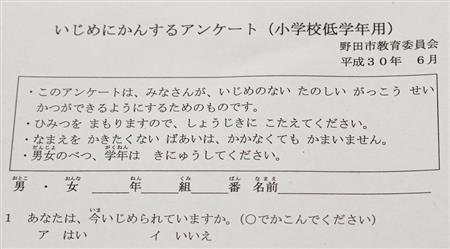 いじめにかんするアンケート（小学校低学年用）
野田市教育委員会
平成３０年　６月
・このアンケートは、みなさんが、いじめのない たのしい がっこう せい
かつができるようにするためのものです。
・ひみつを まもりますので、しょうじきに こたえてください。
・なまえを かきたくない ばあいは、かかなくても かまいません。
・男女のべつ、学年は きにゅうしてください。
男 ・ 女 ＿＿年＿＿組＿＿番 名前
１ あなたは、今いじめられていますか。（○でかこんでください）
ア はい　　イ いいえ